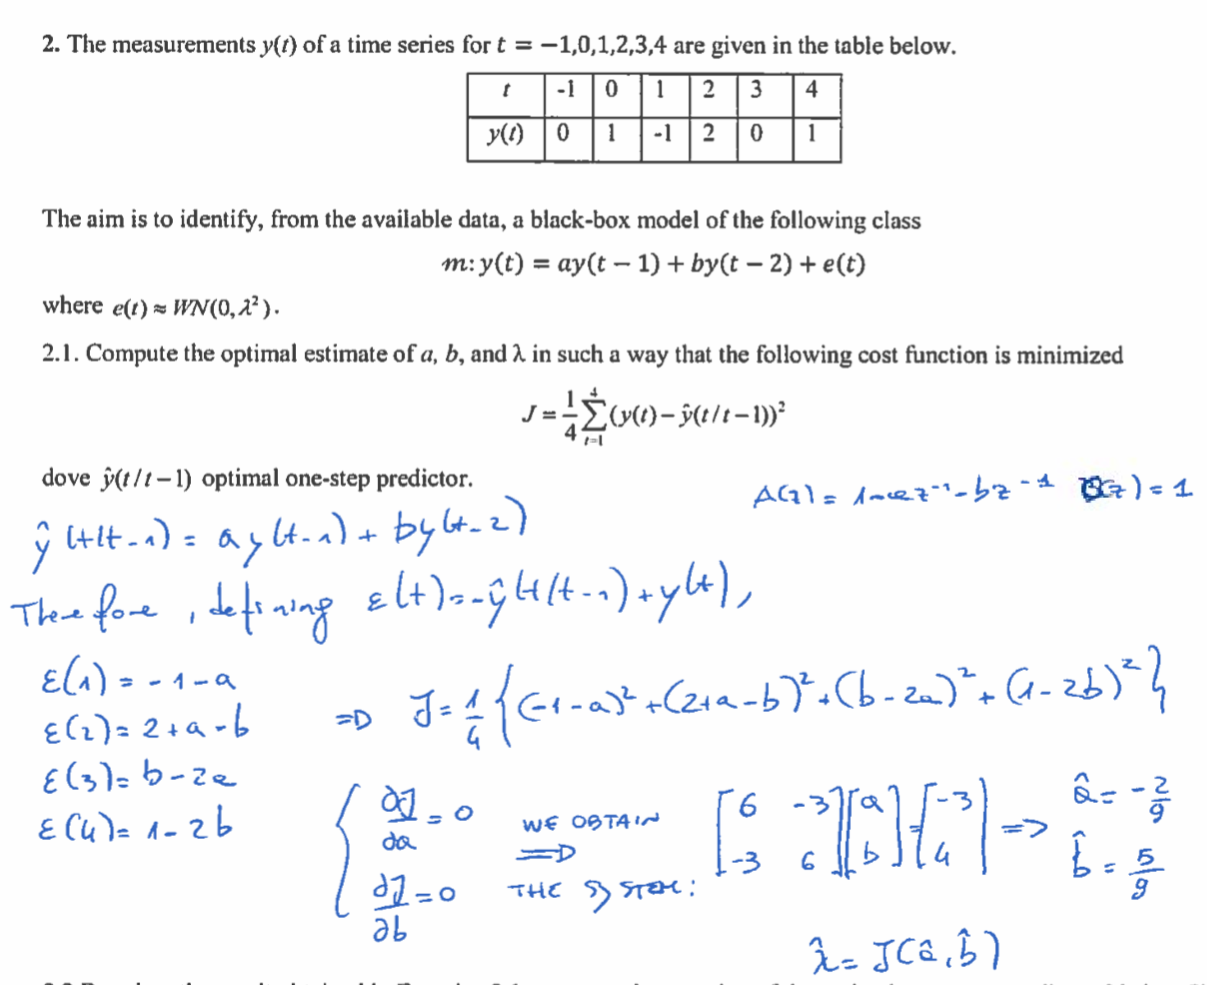 2. The measurements y(t) of a time series for t = −1,0,1,2,3,4 are given in the table below.
t -1 0 1 2 3 4
y(t) 0 1 -1 2 0 1
The aim is to identify, from the available data, a black-box model of the following class
m: y(t) = ay(t − 1) + by(t − 2) + e(t)
where e(t) ≈ WN(0, λ²).
2.1. Compute the optimal estimate of a, b, and λ in such a way that the following cost function is minimized
J = 1/4 ∑_{t=1}^{4} (y(t) − ŷ(t/t−1))²
dove ŷ(t/t−1) optimal one-step predictor.
A(z) = 1-az⁻¹-bz⁻¹ C(z) = 1
ŷ(t|t-1) = ay(t-1) + by(t-2)
Therefore, defining ε(t) = -ŷ(t|t-1) + y(t),
ε(1) = -1-a
ε(2) = 2+a-b
ε(3) = b-2a
ε(4) = 1-2b
=> J = 1/4 {(-1-a)² + (2+a-b)² + (b-2a)² + (1-2b)²}
{ ∂J/∂a = 0
∂J/∂b = 0
WE OBTAIN
=>
THE SYSTEM:
[6 -3; -3 6] [a; b] = [-3; 4] => â = -2/9
b̂ = 5/9
λ̂ = J(â, b̂)